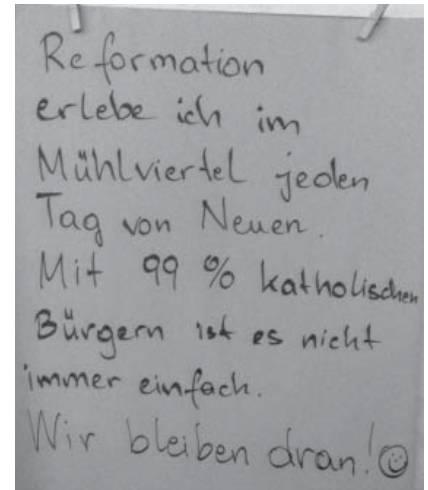 Reformation
erlebe ich im
Mühlviertel jeden
Tag von Neuen.
Mit 99 % katholischen
Bürgern ist es nicht
immer einfach.
Wir bleiben dran! ☺